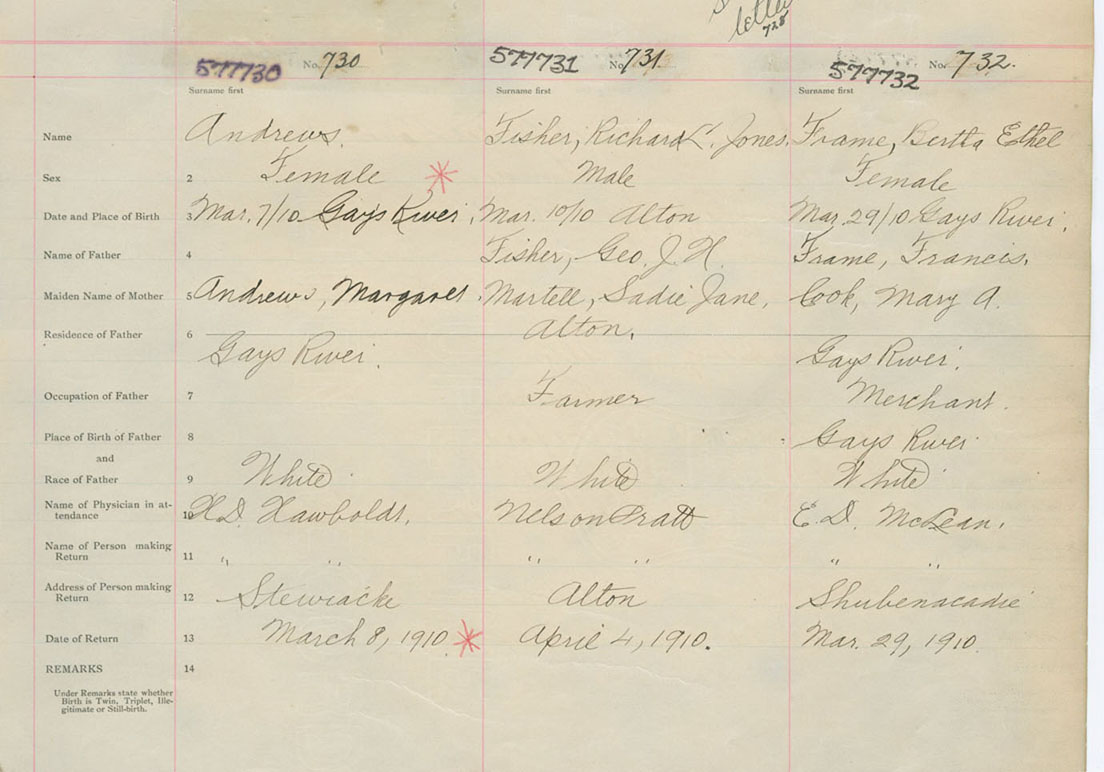 letter
728
577730 No. 730 577731 No. 731. 577732 No. 732.
Surname first Surname first Surname first
Name Andrews. Fisher, Richard L. Jones. Frame, Bertha Ethel
Sex 2 Female Male Female
Date and Place of Birth 3 Mar. 7/10 Gays River. Mar. 10/10 Alton Mar. 29/10 Gays River.
Name of Father 4 Fisher, Geo. J. H. Frame, Francis.
Maiden Name of Mother 5 Andrews, Margaret. Martell, Sadie Jane. Cook, Mary A.
Residence of Father 6 Gays River. Alton. Gays River.
Occupation of Father 7 Farmer Merchant.
Place of Birth of Father 8 Gays River
and
Race of Father 9 White White White
Name of Physician in at-
tendance 10 H.D. Hawboldt. Nelson Pratt E. D. McLean.
Name of Person making
Return 11 " " " " " "
Address of Person making
Return 12 Stewiacke Alton Shubenacadie
Date of Return 13 March 8, 1910. April 4, 1910. Mar. 29, 1910.
REMARKS 14
Under Remarks state whether
Birth is Twin, Triplet, Ille-
gitimate or Still-birth.